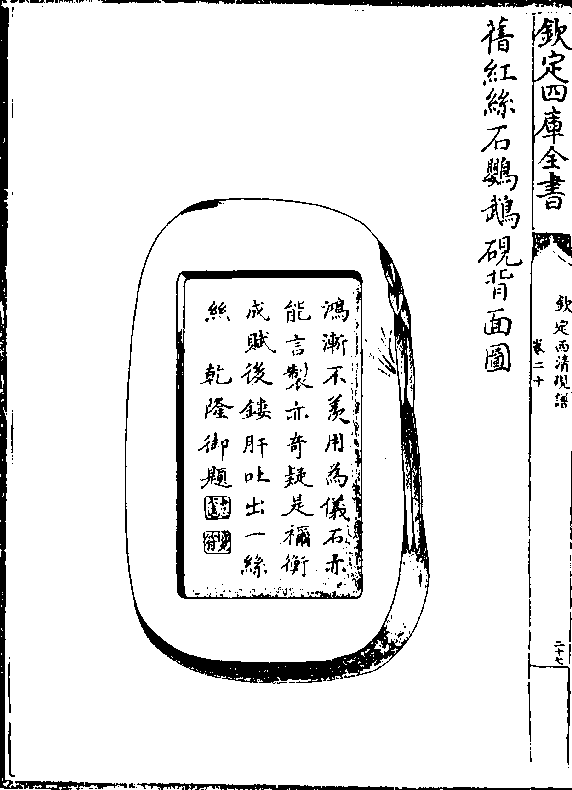 欽定四庫全書
欽定西清硯譜
卷二十
二十七
舊紅絲石鸚鵡硯背面圖
鴻漸不羨用為儀石亦
能言製亦奇疑是禰衡
成賦後鏤肝吐出一絲
絲 乾隆御題